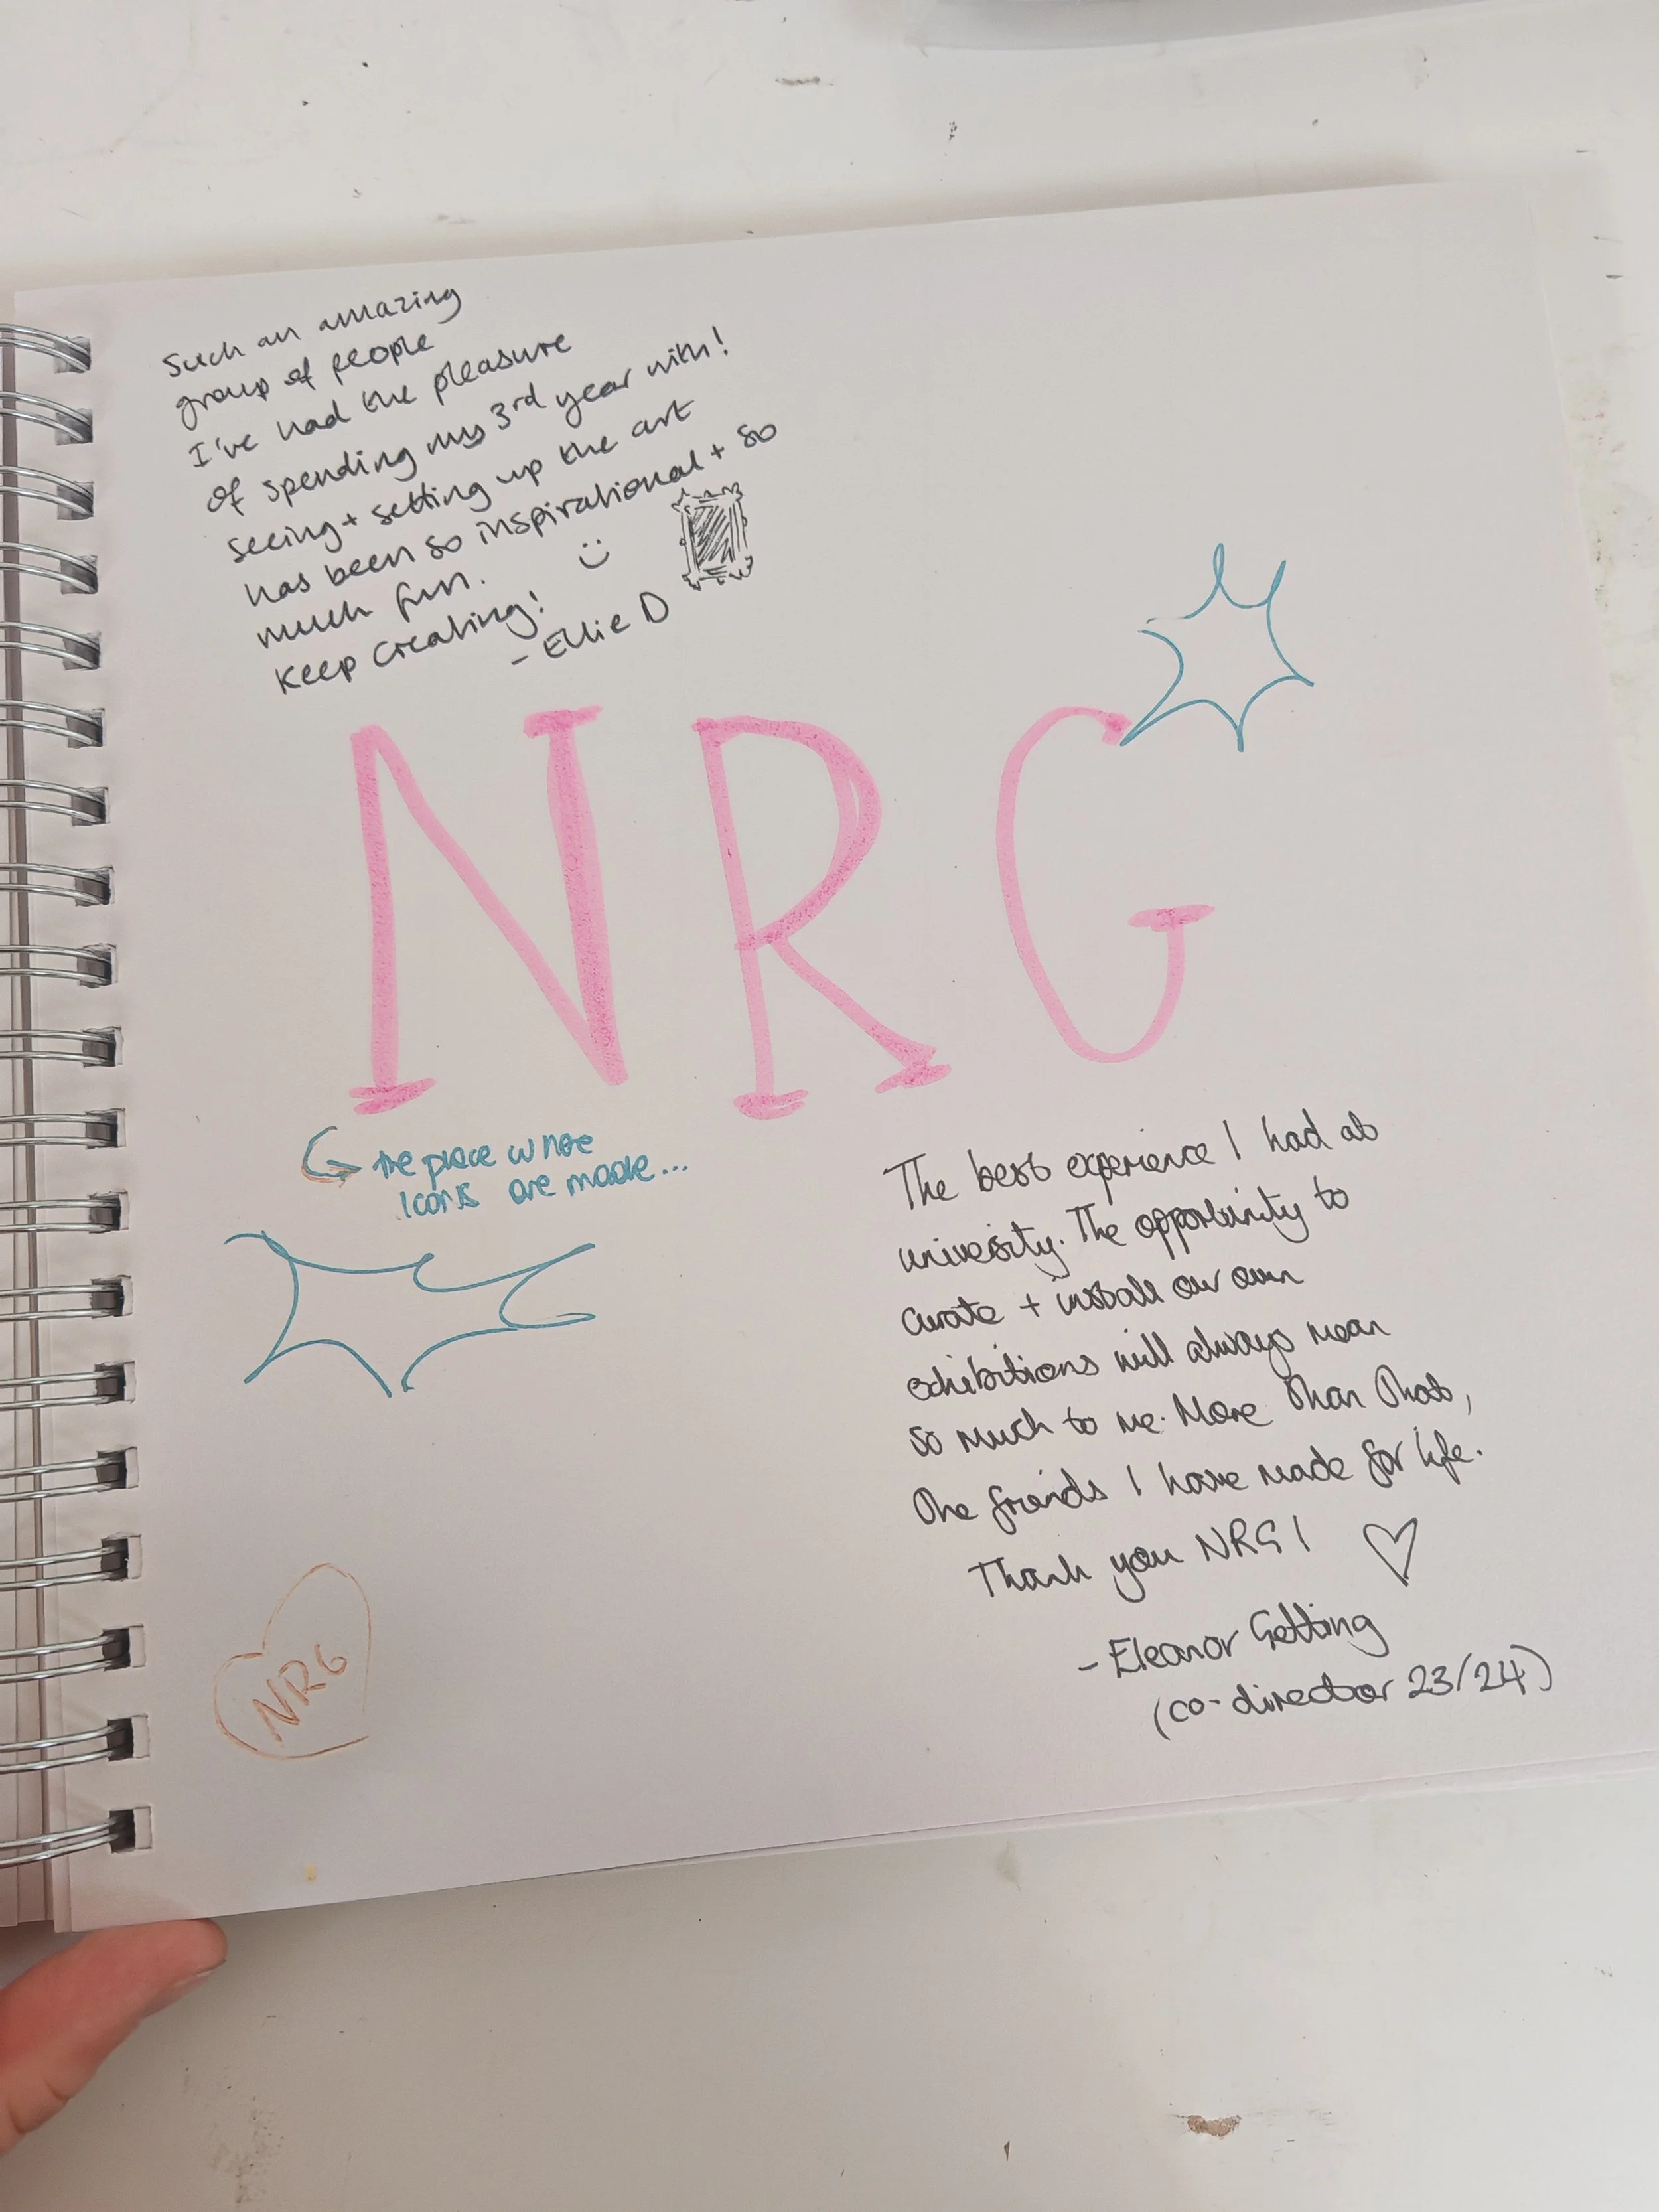 Such an amazing
group of people
I've had the pleasure
of spending my 3rd year with!
seeing + setting up the art
has been so inspirational + so
much fun.
Keep Creating!
- Ellie D
NRG
The place where
icons are made...
The best experience I had at
university. The opportunity to
curate + install our own
exhibitions will always mean
so much to me. More than that,
the friends I have made for life.
Thank you NRG!
- Eleanor Getting
(co-director 23/24)
NRG